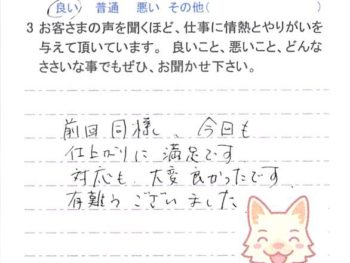 良い 普通 悪い その他(
3 お客さまの声を聞くほど、仕事に情熱とやりがいを
与えて頂いています。 良いこと、悪いこと、どんな
ささいな事でもぜひ、お聞かせ下さい。
前回同様、今回も
仕上がりに満足です
対応も、大変良かったです
有難うございました